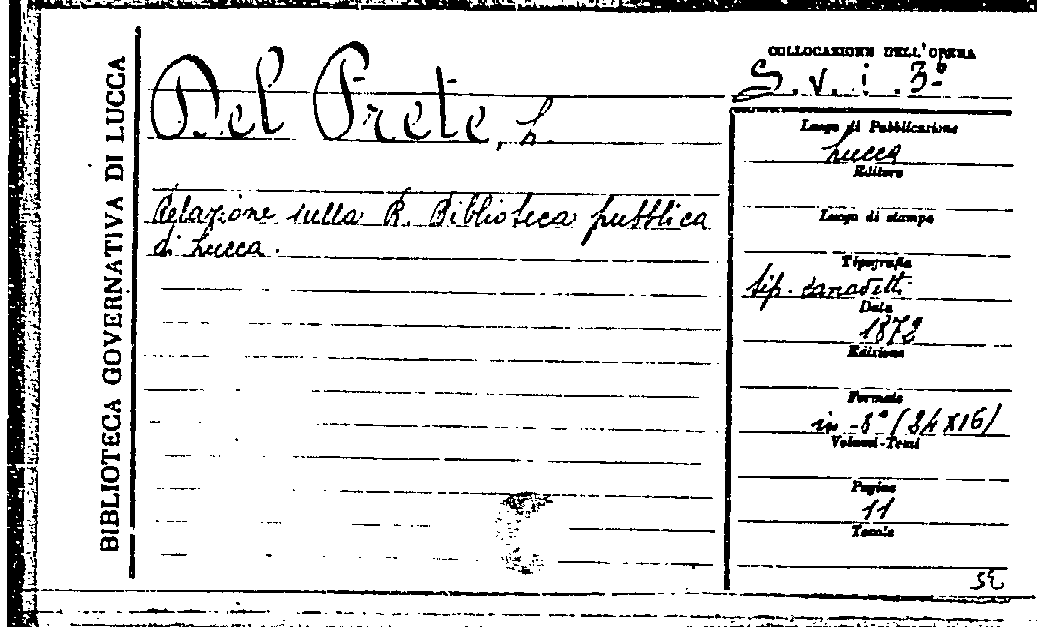 BIBLIOTECA GOVERNATIVA DI LUCCA
Del Prete, L.
Relazione sulla R. Biblioteca pubblica
di Lucca.
COLLOCAZIONE DELL'OPERA
S. v. i. 3º
Luogo di Pubblicazione
Lucca
Editore
Luogo di stampa
Tipografia
tip. Canovetti
Data
1872
Edizione
Formato
in-8º (24×16)
Volumi-Tomi
Pagine
11
Tavole